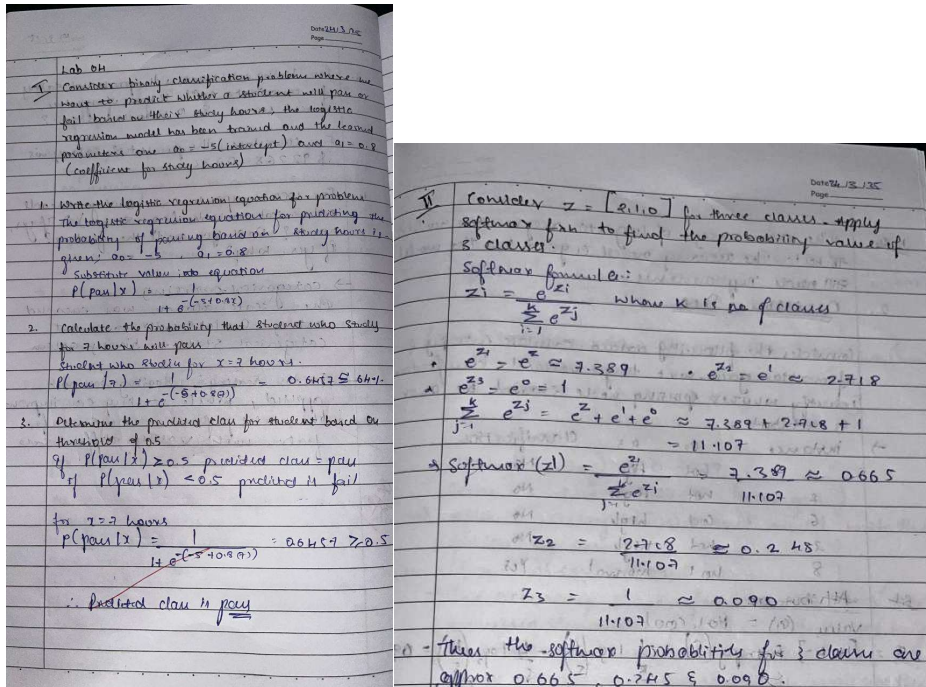 Date 24/3/25
Page
Lab 04
I Consider binary classification problem where we
want to predict whether a student will pass or
fail based on their study hours; the logistic
regression model has been trained and the learned
parameters are a0 = -5 (intercept) and a1 = 0.8
(coefficient for study hours)
1. Write the logistic regression equation for problem
The logistic regression equation for predicting the
probability of passing based on study hours is
given; a0 = -5, a1 = 0.8
Substitute value into equation
P(pass|x) = 1 / 1 + e^-(-5+0.8x)
2. Calculate the probability that student who studies
for 7 hours will pass
student who studies for x = 7 hours.
P(pass|7) = 1 / 1 + e^-(-5+0.8(7)) = 0.6457 ≅ 64%
3. Determine the predicted class for student based on
threshold of 0.5
If P(pass|x) ≥ 0.5 predicted class = pass
If P(pass|x) < 0.5 predicted is fail
for x = 7 hours
P(pass|x) = 1 / 1 + e^-(-5+0.8(7)) = 0.6457 ≥ 0.5
∴ Predicted class is pass
Date 24/3/25
Page
II Consider Z = [2,1,0] for three classes. Apply
softmax fxn to find the probability value of
3 classes.
Softmax formula:
Zi = e^Zi / Σ^K_i=1 e^Zj where K is no of classes
• e^Z1 = e^2 ≈ 7.389 • e^Z2 = e^1 ≈ 2.718
• e^Z3 = e^0 = 1
Σ^K_j=1 e^Zj = e^2 + e^1 + e^0 ≈ 7.389 + 2.718 + 1
= 11.107
→ Softmax (z1) = e^Z1 / Σ e^Zi = 7.389 / 11.107 ≈ 0.665
Z2 = 2.718 / 11.107 ≈ 0.248
Z3 = 1 / 11.107 ≈ 0.090
- Thus the softmax probabilities for 3 classes are
approx 0.665, 0.245 & 0.090.